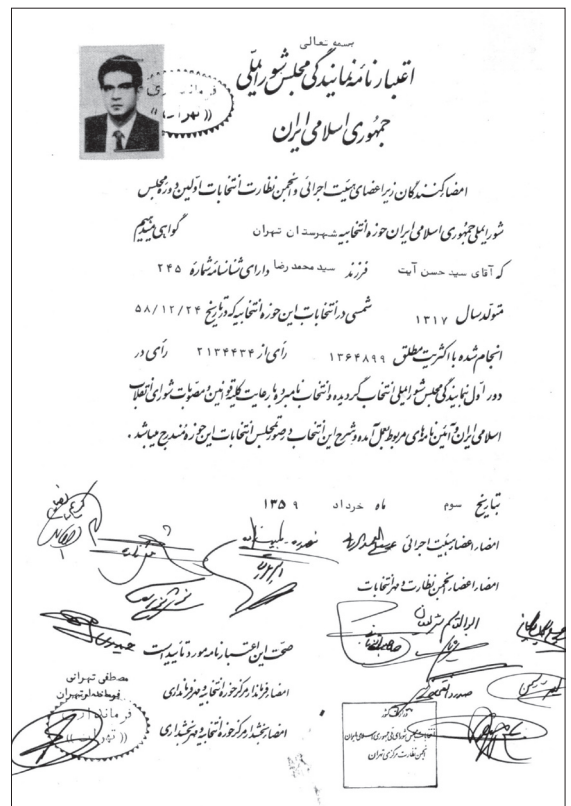 بسمه تعالی
اعتبارنامه نمایندگی مجلس شورای ملی
جمهوری اسلامی ایران
فرمانداری
((تهران))
امضاء کنندگان زیر اعضای هیئت اجرائی و انجمن نظارت انتخابات اولین دوره مجلس
شورای ملی جمهوری اسلامی ایران حوزه انتخابیه شهرستان تهران گواهی میدهیم
که آقای سید حسن آیت فرزند سید محمد رضا دارای شناسنامه شماره ۲۴۵
متولد سال ۱۳۱۷ شمسی در انتخابات این حوزه انتخابیه که در تاریخ ۵۸/۱۲/۲۴
انجام شده با اکثریت مطلق ۱۳۶۴۸۹۹ رأی از ۲۱۳۴۴۳۴ رأی در
دور اول نمایندگی مجلس شورای ملی انتخاب گردیده و انتخاب نامبرده با رعایت کلیه قوانین و مصوبات شورای انقلاب
اسلامی ایران و آئین نامه‌های مربوط بعمل آمده و شرح این انتخاب در صورتمجلس انتخابات این حوزه مندرج میباشد.
بتاریخ سوم ماه خرداد ۱۳۵۹
امضاء اعضاء هیئت اجرائی
امضاء اعضاء انجمن نظارت و مهر انتخابات
صحت این اعتبارنامه مورد تأیید است
مصطفی تهرانی
فرماندار تهران
امضاء فرماندار مرکز حوزه انتخابیه و مهر فرمانداری
فرمانداری
((تهران))
امضاء بخشدار مرکز حوزه انتخابیه و مهر بخشداری
وزارت کشور
انتخابات مجلس شورای ملی جمهوری اسلامی ایران
انجمن نظارت مرکزی تهران